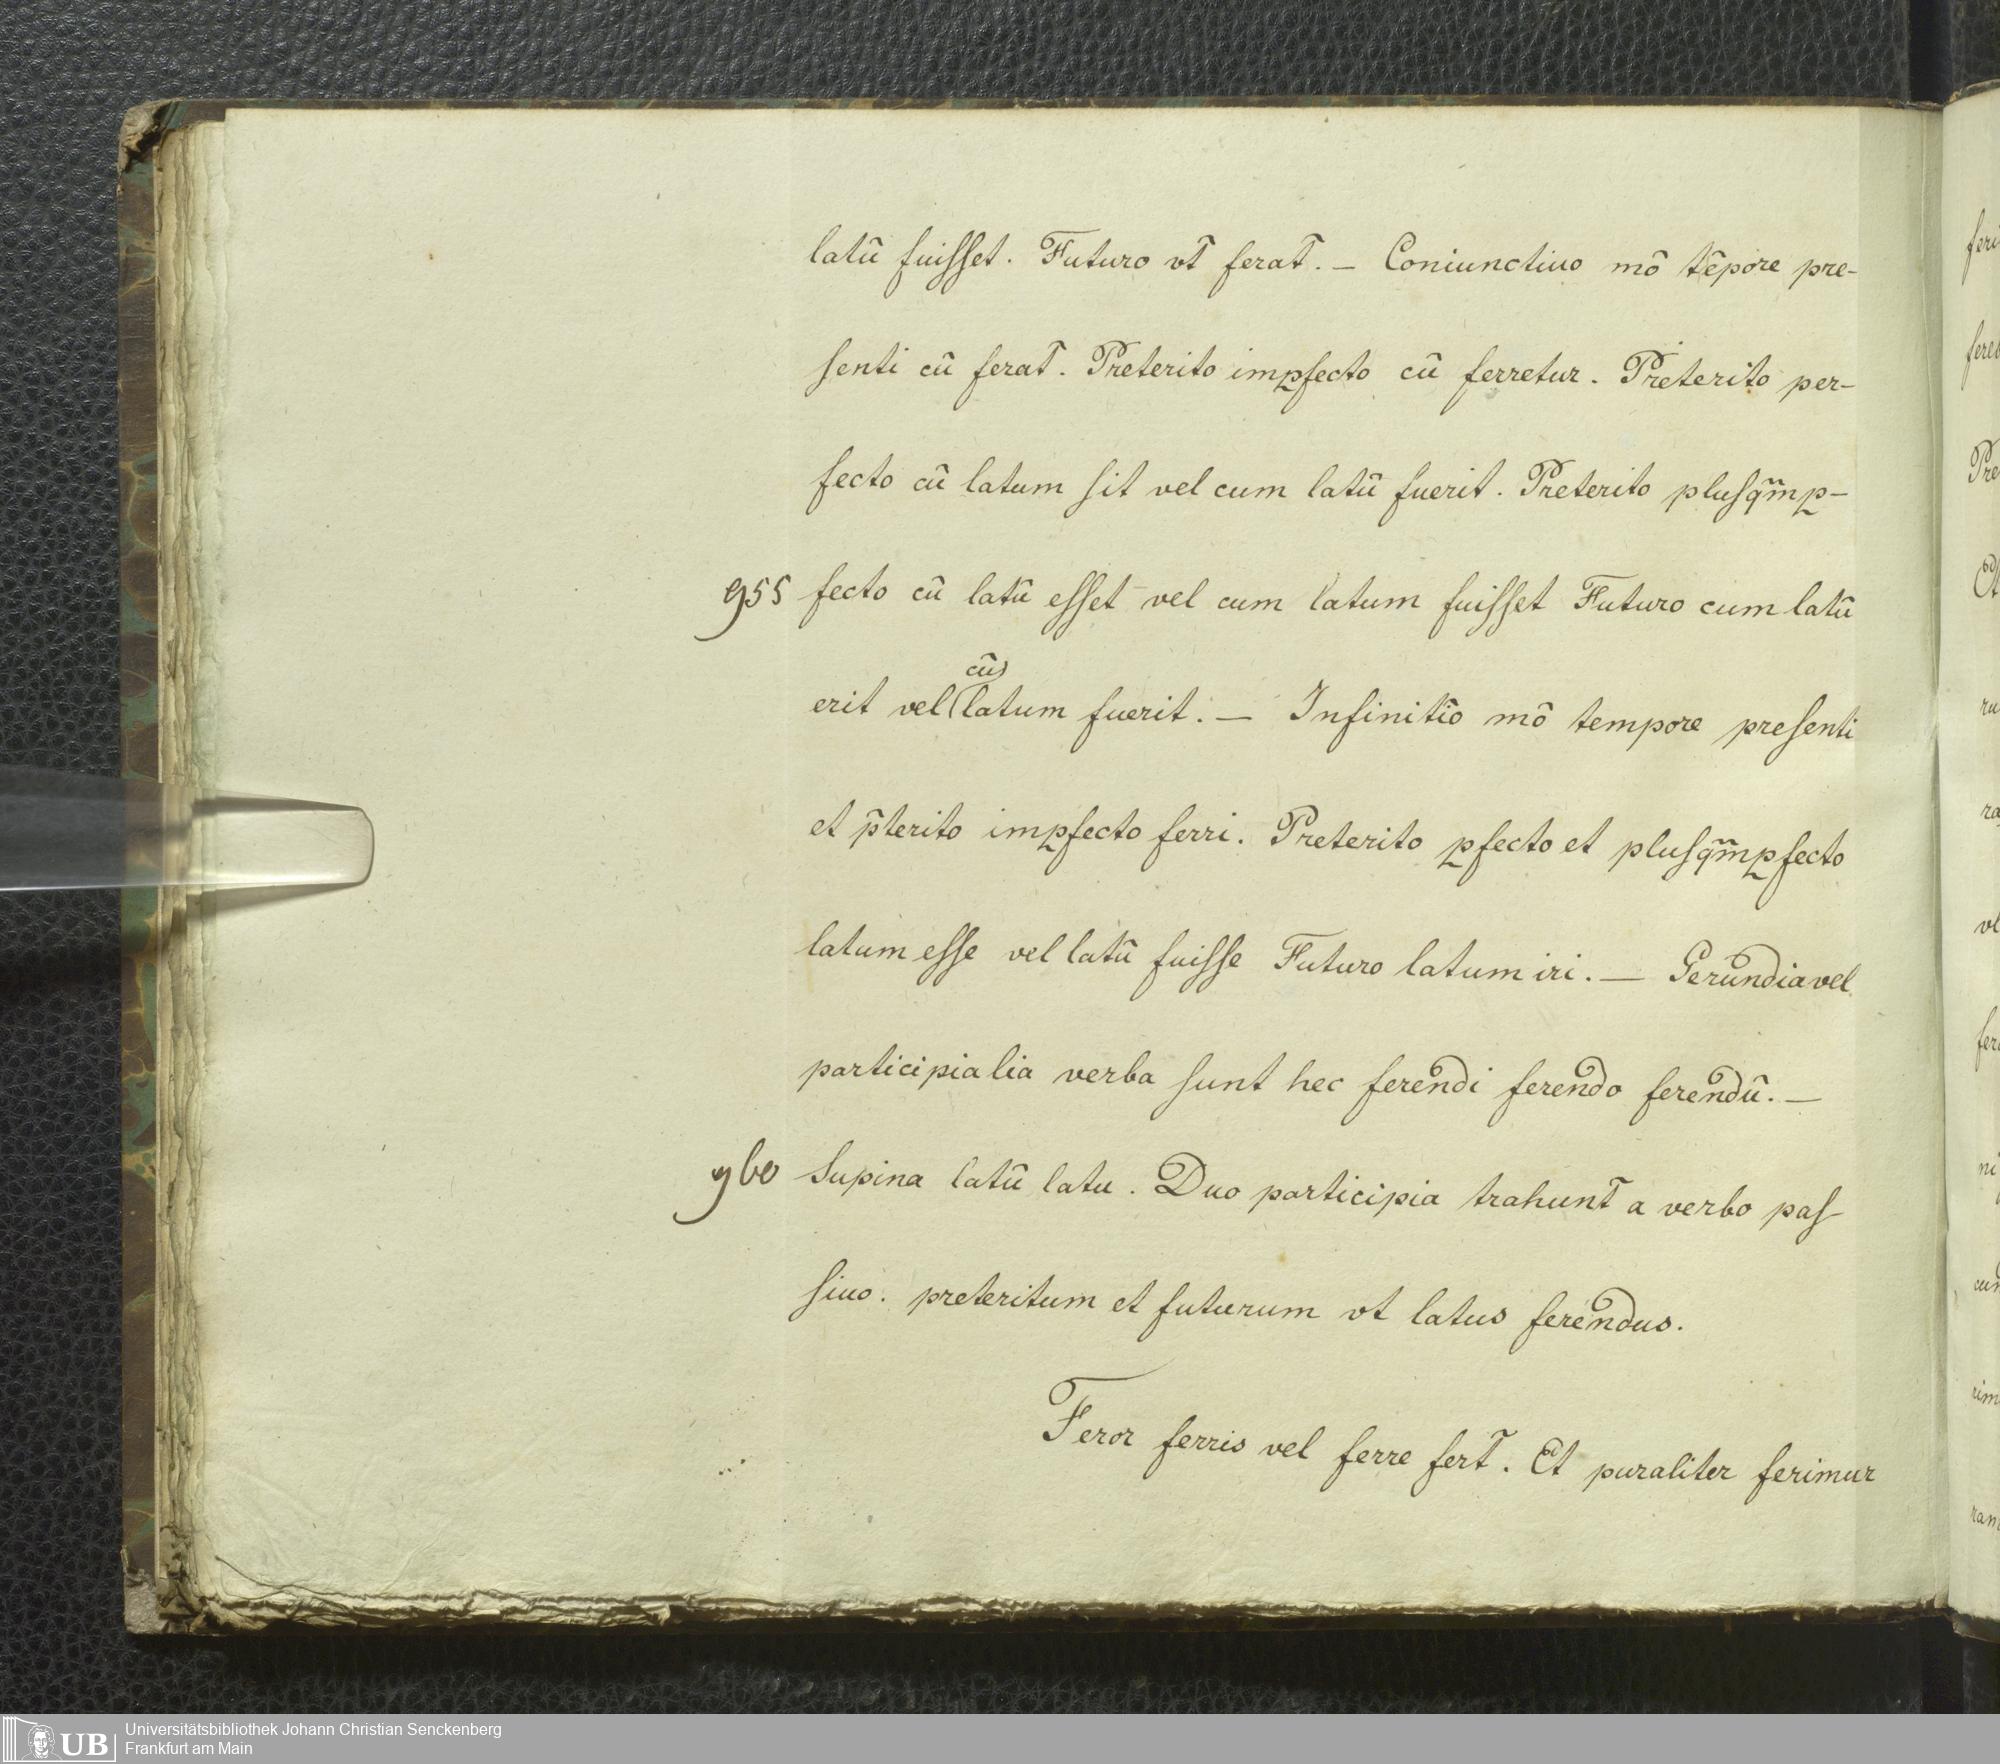 latū fuiſſet. Futuro vt̄ ferat̄. — Coniunctiuo mō tēpore pre-
ſenti cū ferat̄. Preterito imꝑfecto cū ferretur. Preterito per-
fecto cū latum ſit vel cum latū fuerit. Preterito pluſq̄m̄ꝑ-
955 fecto cū latū eſſet vel cum latum fuiſſet Futuro cum latū
cū
erit vel latum fuerit. — Infinitīo mō tempore preſenti
et p̄terito imꝑfecto ferri. Preterito ꝑfecto et pluſq̄m̄ꝑfecto
latum eſſe vel latū fuiſſe Futuro latum iri. — Gerundia vel
participialia verba ſunt hec ferendi ferendo ferendū. —
960 Supina latū latu. Duo participia trahunt̄ a verbo paſ-
ſiuo. preteritum et futurum vt latus ferendus.
Feror ferris vel ferre fert̄. Et puraliter ferimur
UB Universitätsbibliothek Johann Christian Senckenberg
Frankfurt am Main